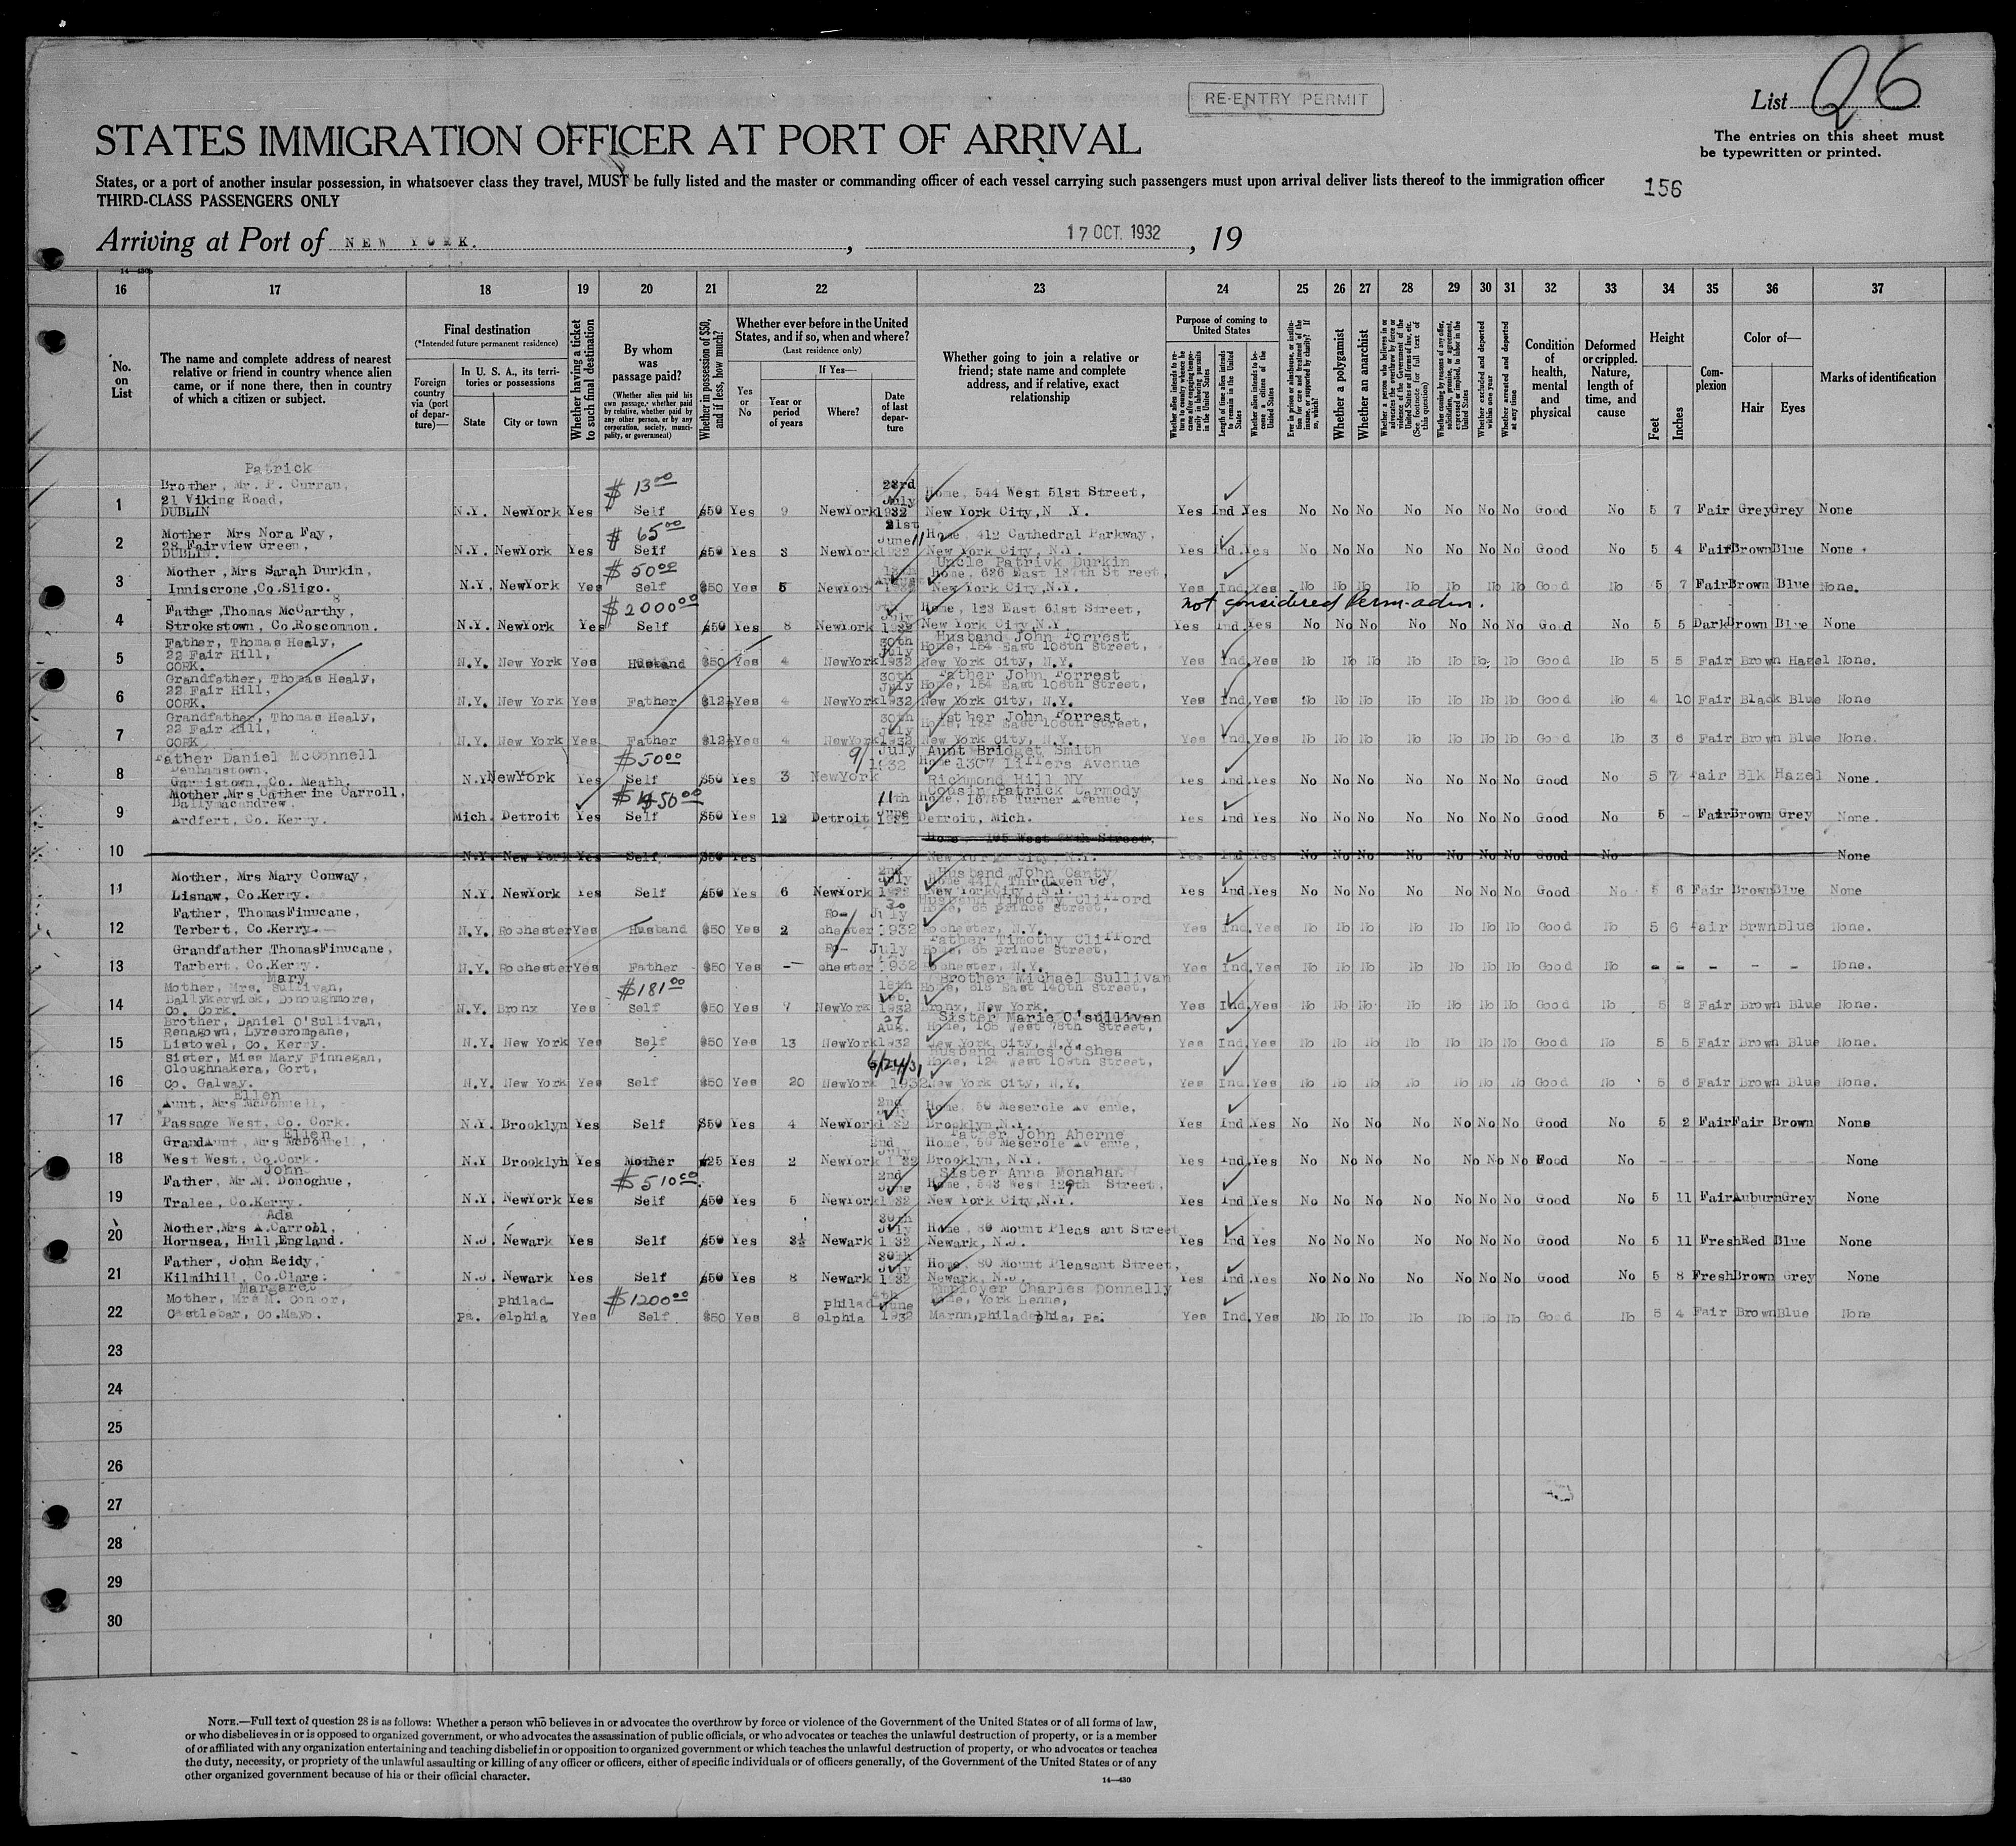 RE-ENTRY PERMIT
List 26
The entries on this sheet must
be typewritten or printed.
STATES IMMIGRATION OFFICER AT PORT OF ARRIVAL
States, or a port of another insular possession, in whatsoever class they travel, MUST be fully listed and the master or commanding officer of each vessel carrying such passengers must upon arrival deliver lists thereof to the immigration officer
156
THIRD-CLASS PASSENGERS ONLY
Arriving at Port of NEW YORK. , 17 OCT. 1932 , 19
16 17 18 19 20 21 22 23 24 25 26 27 28 29 30 31 32 33 34 35 36 37
No. on List
The name and complete address of nearest relative or friend in country whence alien came, or if none there, then in country of which a citizen or subject.
Final destination
(*Intended future permanent residence)
Foreign country via (port of departure)—
In U. S. A., its territories or possessions
State
City or town
Whether having a ticket to such final destination
By whom was passage paid?
(Whether alien paid his own passage, whether paid by relative, whether paid by any other person, or by any corporation, society, municipality, or government)
Whether in possession of $50, and if less, how much?
Whether ever before in the United States, and if so, when and where?
(Last residence only)
Yes or No
If Yes—
Year or period of years
Where?
Date of last departure
Whether going to join a relative or friend; state name and complete address, and if relative, exact relationship
Purpose of coming to United States
Length of time alien intends to remain in the United States
Whether alien intends to become a citizen of the United States
Whether a polygamist
Whether an anarchist
Whether excluded and deported within one year
Whether arrested and deported at any time
Condition of health, mental and physical
Deformed or crippled. Nature, length of time, and cause
Height
Feet
Inches
Complexion
Color of—
Hair
Eyes
Marks of identification
Patrick
Brother, Mr. P. Curran, $ 13 00 23rd
21 Viking Road, July Home, 544 West 51st Street,
1 DUBLIN N.Y. NewYork Yes Self $50 Yes 9 NewYork 1932 New York City, N.Y. Yes Ind. Yes No No No No No No No Good No 5 7 Fair Grey Grey None
Mother Mrs Nora Fay, $ 65 00 21st
28 Fairview Green, June 11 Home, 412 Cathedral Parkway,
2 DUBLIN. N.Y. NewYork Yes Self $50 Yes 3 NewYork 1932 New York City, N.Y. Yes Ind. Yes No No No No No No No Good No 5 4 Fair Brown Blue None.
Mother, Mrs Sarah Durkin, $ 50 00 Uncle Patrivk Durkin
Home, 636 East 187th St reet,
3 Inniscrone, Co.Sligo. N.Y. NewYork Yes Self $50 Yes 5 NewYork 1932 New York City, N.Y. Yes Ind. Yes No No No No No No No Good No 5 7 Fair Brown Blue None.
Father, Thomas McCarthy, $ 2000 00 July Home, 123 East 61st Street, not considered Perm-adm.
4 Strokestown, Co.Roscommon. N.Y. NewYork Yes Self $50 Yes 8 NewYork 1932 New York City N.Y. Yes Ind. Yes No No No No No No No Good No 5 5 Dark Brown Blue None
Father, Thomas Healy, 30th Husband John Forrest
22 Fair Hill, July Home, 154 East 106th Street,
5 CORK. N.Y. New York Yes Husband $50 Yes 4 NewYork 1932 New York City, N.Y. Yes Ind. Yes No No No No No No No Good No 5 5 Fair Brown Hazel None.
Grandfather, Thomas Healy, 30th Father John Forrest
22 Fair Hill, July Home, 154 East 106th Street,
6 CORK. N.Y. New York Yes Father $12½ Yes 4 NewYork 1932 New York City, N.Y. Yes Ind. Yes No No No No No No No Good No 4 10 Fair Black Blue None
Grandfather, Thomas Healy, 30th father John Forrest
22 Fair Hill, July Home, 154 East 106th Street,
7 CORK N.Y. New York Yes Father $12½ Yes 4 NewYork 1932 New York City, N.Y. Yes Ind. Yes No No No No No No No Good No 3 6 Fair Brown Blue None.
Father Daniel McConnell $ 50 00 9/ July Aunt Bridget Smith
1932 Home 1307 Liffers Avenue
8 Garristown, Co. Meath. N.Y NewYork Yes Self $50 Yes 3 NewYork Richmond Hill NY Yes Ind. Yes No No No No No No No Good No 5 7 fair Blk Hazel None.
Mother, Mrs Catherine Carroll, $50 00 Cousin Patrick Carmody
Ballymacandrew, 11th Home, 16755 Turner Avenue,
9 Ardfert, Co. Kerry. Mich. Detroit Yes Self $50 Yes 12 Detroit June Detroit, Mich. Yes Ind Yes No No No No No No No Good No 5 - Fair Brown Grey None.
10 N.Y. New York Yes Self $50 Yes New York City, N.Y. Yes Ind Yes No No No No No No No Good No None
Mother, Mrs Mary Conway, 2nd July Husband John Canty
11 Lisnaw, Co.Kerry. N.Y. NewYork Yes Self $50 Yes 6 NewYork 1932 New York City, N.Y. Yes Ind. Yes No No No No No No No Good No 5 6 Fair Brown Blue None
Father, ThomasFinucane, 30 Husband Timothy Clifford
Ro- July Home, 65 prince street,
12 Terbert, Co.Kerry. N.Y. Rochester Yes Husband $50 Yes 2 chester 1932 Rochester, N.Y. Yes Ind. Yes No No No No No No No Good No 5 6 fair Brwn Blue None.
Grandfather, ThomasFinucane, Father Timothy Clifford
Ro- July Home, 65 prince street,
13 Tarbert, Co.Kerry. N.Y. Rochester Yes Father $50 Yes -- chester 1932 Rochester, N.Y. Yes Ind. Yes No No No No No No No Good No - - - - - None.
Mary
Mother, Mrs. Sullivan, $181 00 Brother Michael Sullivan
Ballykerwick, Donoughmore, 18th Feb. Home, 618 East 140th Street,
14 Co. Cork. N.Y. Bronx Yes Self $50 Yes 7 NewYork 1932 Bronx, New York. Yes Ind. Yes No No No No No No No Good No 5 8 Fair Brown Blue None.
Brother, Daniel O'Sullivan, 27 Sister Marie O'sullivan
Renagown, Lyrecrompane, Aug. Home, 105 West 78th Street,
15 Listowel, Co. Kerry. N.Y. New York Yes Self $50 Yes 13 NewYork 1932 New York City, N.Y. Yes Ind. Yes No No No No No No No Good No 5 5 Fair Brown Blue None.
Sister, Miss Mary Finnegan, Husband James O'Shea
Cloughnakera, Gort, 6/24/31 Home, 124 West 109th Street,
16 Co. Galway. N.Y. New York Yes Self $50 Yes 20 NewYork 1932 New York City, N.Y. Yes Ind. Yes No No No No No No No Good No 5 6 Fair Brown Blue None.
Ellen
Aunt, Mrs McDonnell, 2nd July Home, 50 Meserole Av enue,
17 Passage West, Co. Cork. N.Y. Brooklyn Yes Self $50 Yes 4 NewYork 1932 Brooklyn, N.Y. Yes Ind. Yes No No No No No No No Good No 5 2 Fair Fair Brown None
Ellen Father John Aherne
GrandAunt, Mrs McDonnell, 2nd July Home, 50 Meserole Av enue,
18 West West, Co.Cork. N.Y Brooklyn Yes Mother $25 Yes 2 NewYork 1932 Brooklyn, N.Y. Yes Ind. Yes No No No No No No No Food No - - - - - None
John Sister Anna Monahan
Father, Mr M. Donoghue, $ 510 00 2nd June Home, 543 West 129th Street,
19 Tralee, Co.Kerry. N.Y. NewYork Yes Self $50 Yes 5 NewYork 1932 New York City, N.Y. Yes Ind. Yes No No No No No No No Good No 5 11 Fair Auburn Grey None
Ada
Mother, Mrs A.Carrobl, 30th July Home, 80 Mount Pleas ant Street
20 Hornsea, Hull, England. N.J Newark Yes Self $50 Yes 3½ Newark 1932 Newark, N.J. Yes Ind Yes No No No No No No No Good No 5 11 Fresh Red Blue None
Father, John Reidy, 30th July Home, 80 Mount Pleasant Street,
21 Kilmihill, Co.Clare: N.J Newark Yes Self $50 Yes 8 Newark 1932 Newark, N.J. Yes Ind. Yes No No No No No No No Good No 5 8 Fresh Brown Grey None
Margaret Employer Charles Donnelly
Mother, Mrs M. Connor, philad- $ 1200 00 philad June Home, York Lenne,
22 Castlebar, Co.Mayo. pa. elphia Yes Self $50 Yes 8 elphia 1932 Marnn, philadelphia, pa. Yes Ind. Yes No No No No No No No Good No 5 4 Fair Brown Blue None
23
24
25
26
27
28
29
30
NOTE.—Full text of question 28 is as follows: Whether a person who believes in or advocates the overthrow by force or violence of the Government of the United States or of all forms of law,
or who disbelieves in or is opposed to organized government, or who advocates the assassination of public officials, or who advocates or teaches the unlawful destruction of property, or is a member
of or affiliated with any organization entertaining and teaching disbelief in or opposition to organized government or which teaches the unlawful destruction of property, or who advocates or teaches
the duty, necessity, or propriety of the unlawful assaulting or killing of any officer or officers, either of specific individuals or of officers generally, of the Government of the United States or of any
other organized government because of his or their official character.
14—430